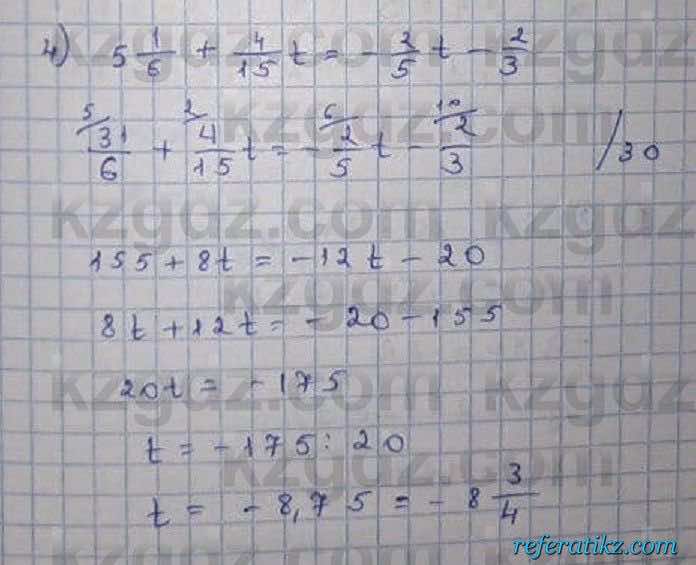 4) 5 1/6 + 4/15 t = - 2/5 t - 2/3
5/ 31/6 + 2/ 4/15 t = - 6/ 2/5 t - 10/ 2/3 /30
155 + 8t = -12t - 20
8t + 12t = -20 - 155
20t = -175
t = -175 : 20
t = -8,75 = -8 3/4
kzgdz.com
referatikz.com